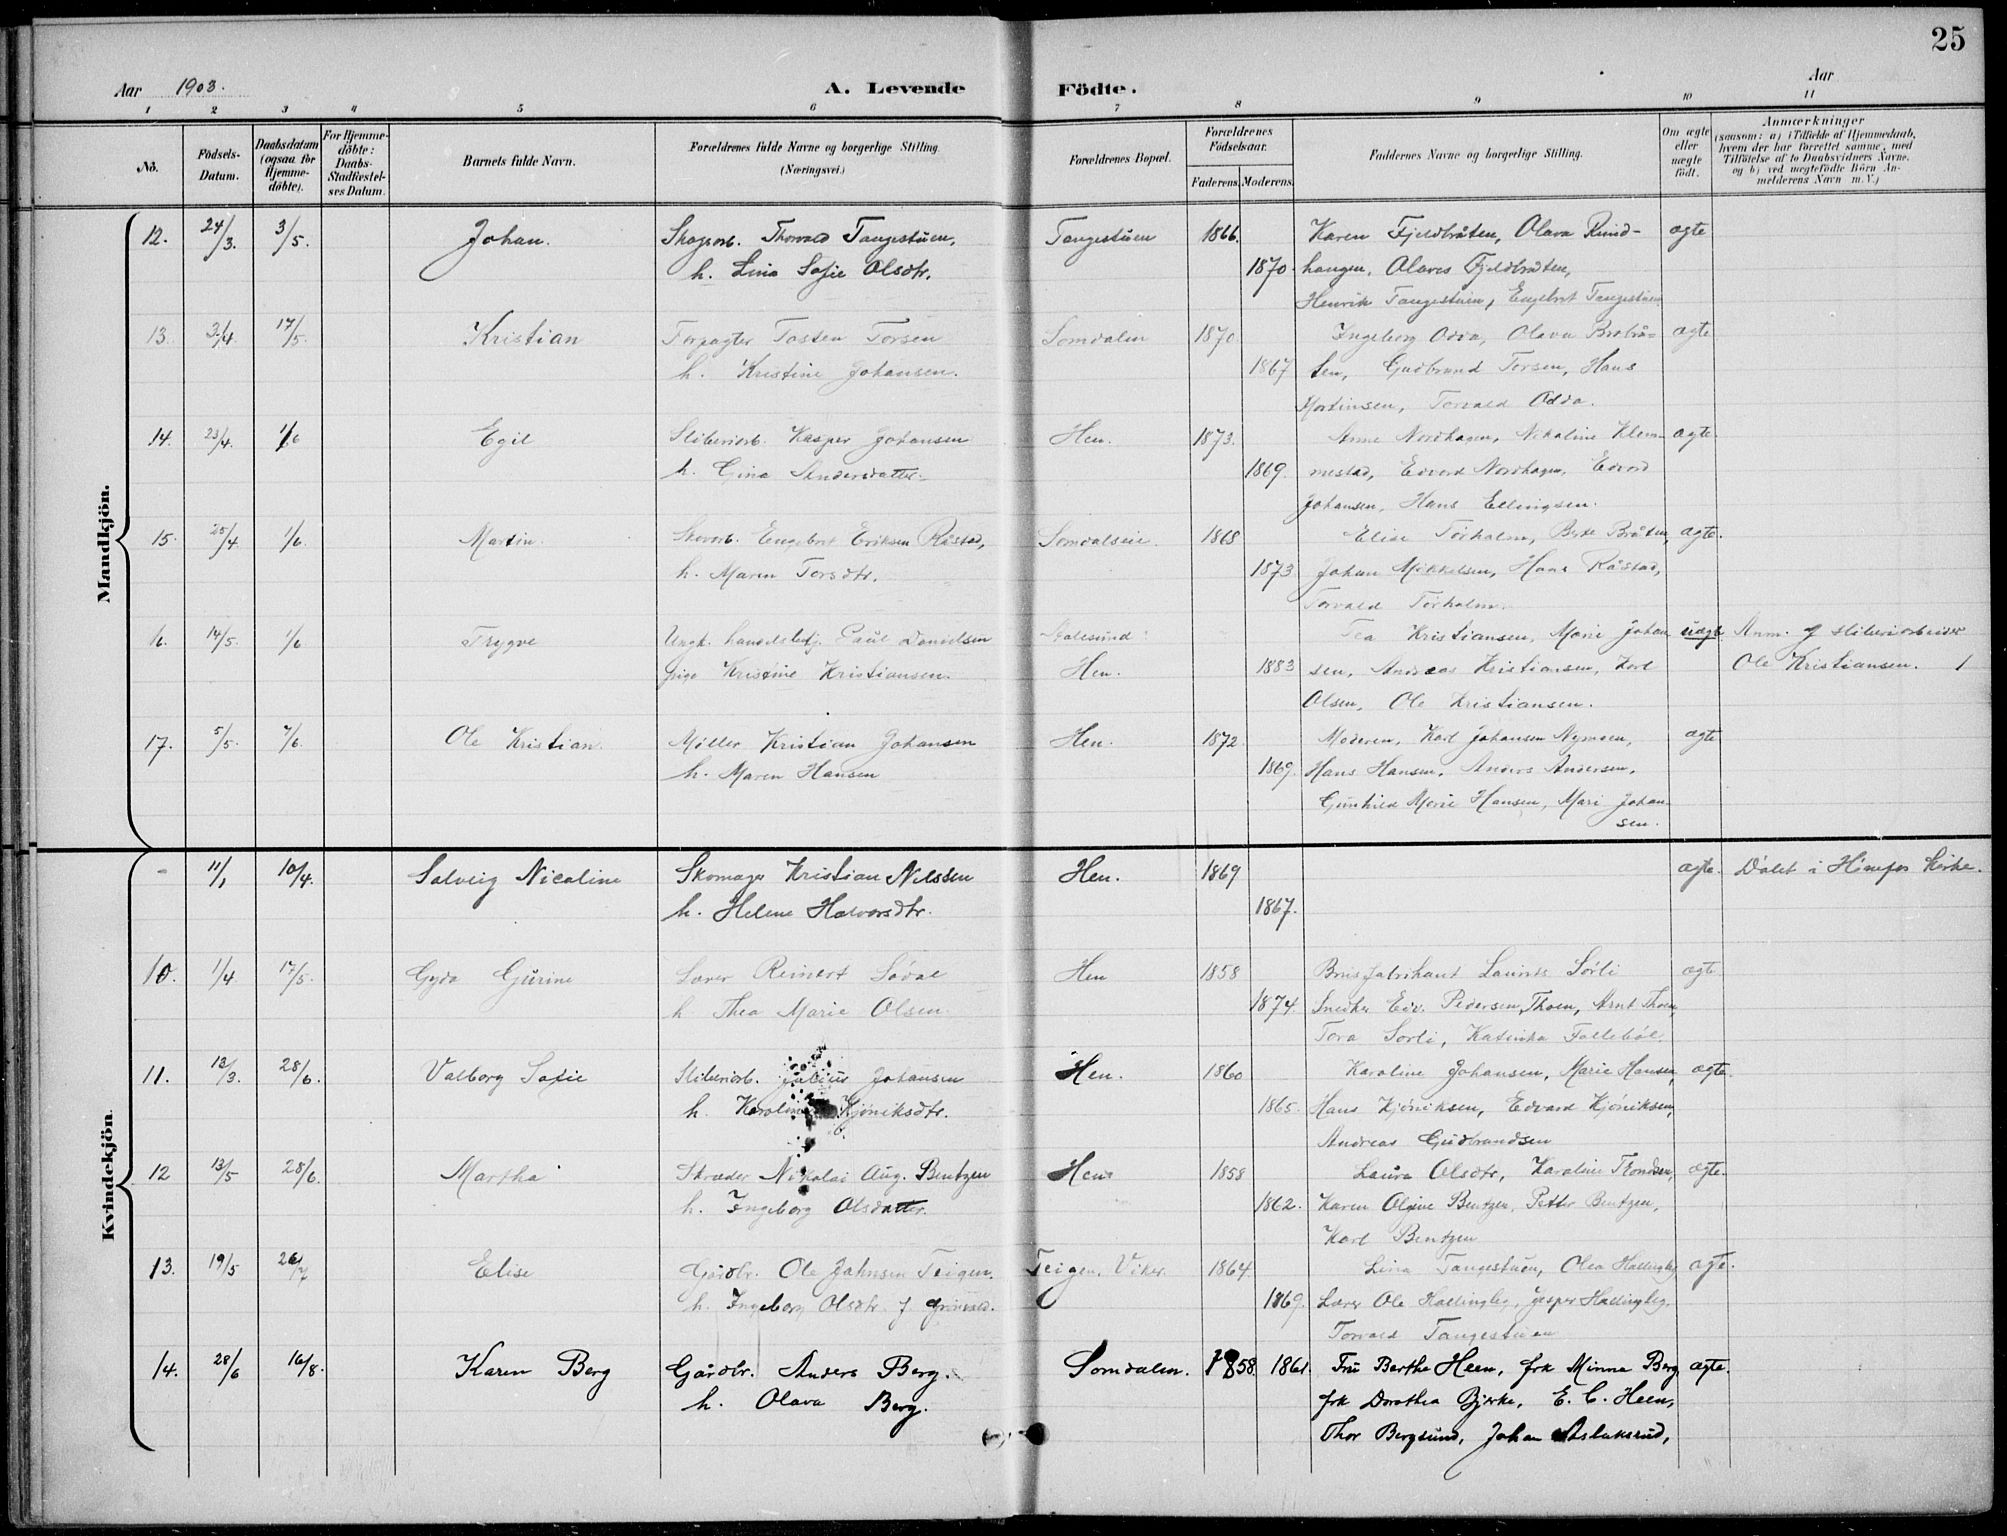 25
Aar 1903. A. Levende Födte. Aar
1 2 3 4 5 6 7 8 9 10 11
No. Födsels-Datum. Daabsdatum (ogsaa for Hjemme-döbte). For Hjemme-döbte: Daabs-Stadfæstel-ses Datum. Barnets fulde Navn. Forældrenes fulde Navne og borgerlige Stilling (Næringsvei.) Forældrenes Bopæl. Forældrenes Födselsaar. Faderens. Moderens. Faddernes Navne og borgerlige Stilling. Om ægte eller uægte födt. Anmærkninger (saasom: a) i Tilfælde af Hjemmedaab, hvem der har forrettet samme, med Tilföielse af to Daabsvidners Navne, og b) ved uægtefödte Börn An-melderens Navn m. V.)
Mandkjön.
12. 24/3. 3/5. Johan. Skogsarb. Thorvald Tangestuen, Tangestuen 1866. Karen Fjeldbråten, Olava Rund- ægte
h. Lina Sofie Olsdtr. 1870. haugen, Olaves Fjeldbråten,
Henrik Tangestuen, Engebret Tangestuen
13. 3/4 17/5. Kristian Forpagter Tosten Torsen Somdalen 1870 Ingeborg Odda, Olava Brobrå- ægte
h. Kristine Johansen. 1867 ten, Gudbrand Torsen, Hans
Mortinsen, Torvald Odda.
14. 23/4. 1/6 Egil Sliberiarb. Kasper Johansen Hen. 1873. Anne Nordhagen, Nikoline Klem- ægte.
h. Gina Andersdatter. 1869. mestad, Edvard Nordhagen, Edvard
Johansen, Hans Ellingsen.
15. 25/4 1/6. Martin. Skovarb. Engebret Eriksen Råstad, Somdalseie. 1868 Elise Torholm, Berte Bråten, ægte.
h. Maren Torsdtr. 1873 Johan Mikkelsen, Hans Råstad,
Torvald Torholm.
16. 14/5. 1/6 Trygve Ungk. handelsbetj. Paul Danielsen Tea Kristiansen, Marie Johan- uægte Anm. af sliberiarbeider
Pige Kristine Kristiansen. Hen. 1883 sen, Andreas Kristiansen, Karl Ole Kristiansen. 1
Olsen, Ole Kristiansen.
17. 5/5. 7/6. Ole Kristian. Møller Kristian Johansen Hen. 1872. Moderen, Karl Johansen Nymoen, ægte
h. Maren Hansen 1869. Hans Hansen, Anders Andersen,
Gunhild Marie Hansen, Mari Johan-
sen.
Kvindekjön.
- 11/1 10/4. Solveig Nicoline Skomager Kristian Nilssen Hen. 1869 ægte. Døbt i Hønefos Kirke.
h. Helene Halvorsdtr. 1867.
10. 1/4 17/5. Gyda Gurine Lærer Reinert Sødal Hen 1858 Brusfabrikant Laurits Sørli ægte
h. Thea Marie Olsen. 1874. Snedker Edv. Pedersen, Thoen, Arnt Thoen,
Tora Sørli, Katinka Follebøl.
11. 12/3. 28/6. Valborg Sofie Sliberiarb. Julius Johansen Hen. 1860 Karoline Johansen, Marie Hansen, ægte.
h. Karoline Kjøniksdtr. 1865. Hans Kjøniksen, Edvard Kjøniksen,
Andreas Gudbrandsen
12 13/5 28/6. Martha Skræder Nikolai Aug. Bentzen Hen 1858 Laura Olsdtr, Karoline Trondsen, ægte.
h. Ingeborg Olsdatter. 1862. Karen Olave Bentzen, Petter Bentzen,
Karl Bentzen
13. 19/5 26/7 Elise Gårdbr. Ole Johnsen Teigen. Teigen, Viker. 1864. Lina Tangestuen, Olea Hallingby ægte.
h. Ingeborg Olsdtr. f. 1869. Lærer Ole Hallingby, Jesper Hallingby,
Torvald Tangestuen
14. 28/6 16/8. Karen Berg Gårdbr. Anders Berg. Somdalen. 1858. 1861 Fru Berthe Heen, frk Minna Berg ægte.
h. Olava Berg. frk Dorothea Bjerke, E. C. Heen,
Thor Bergsund, Johan Aslaksrud,